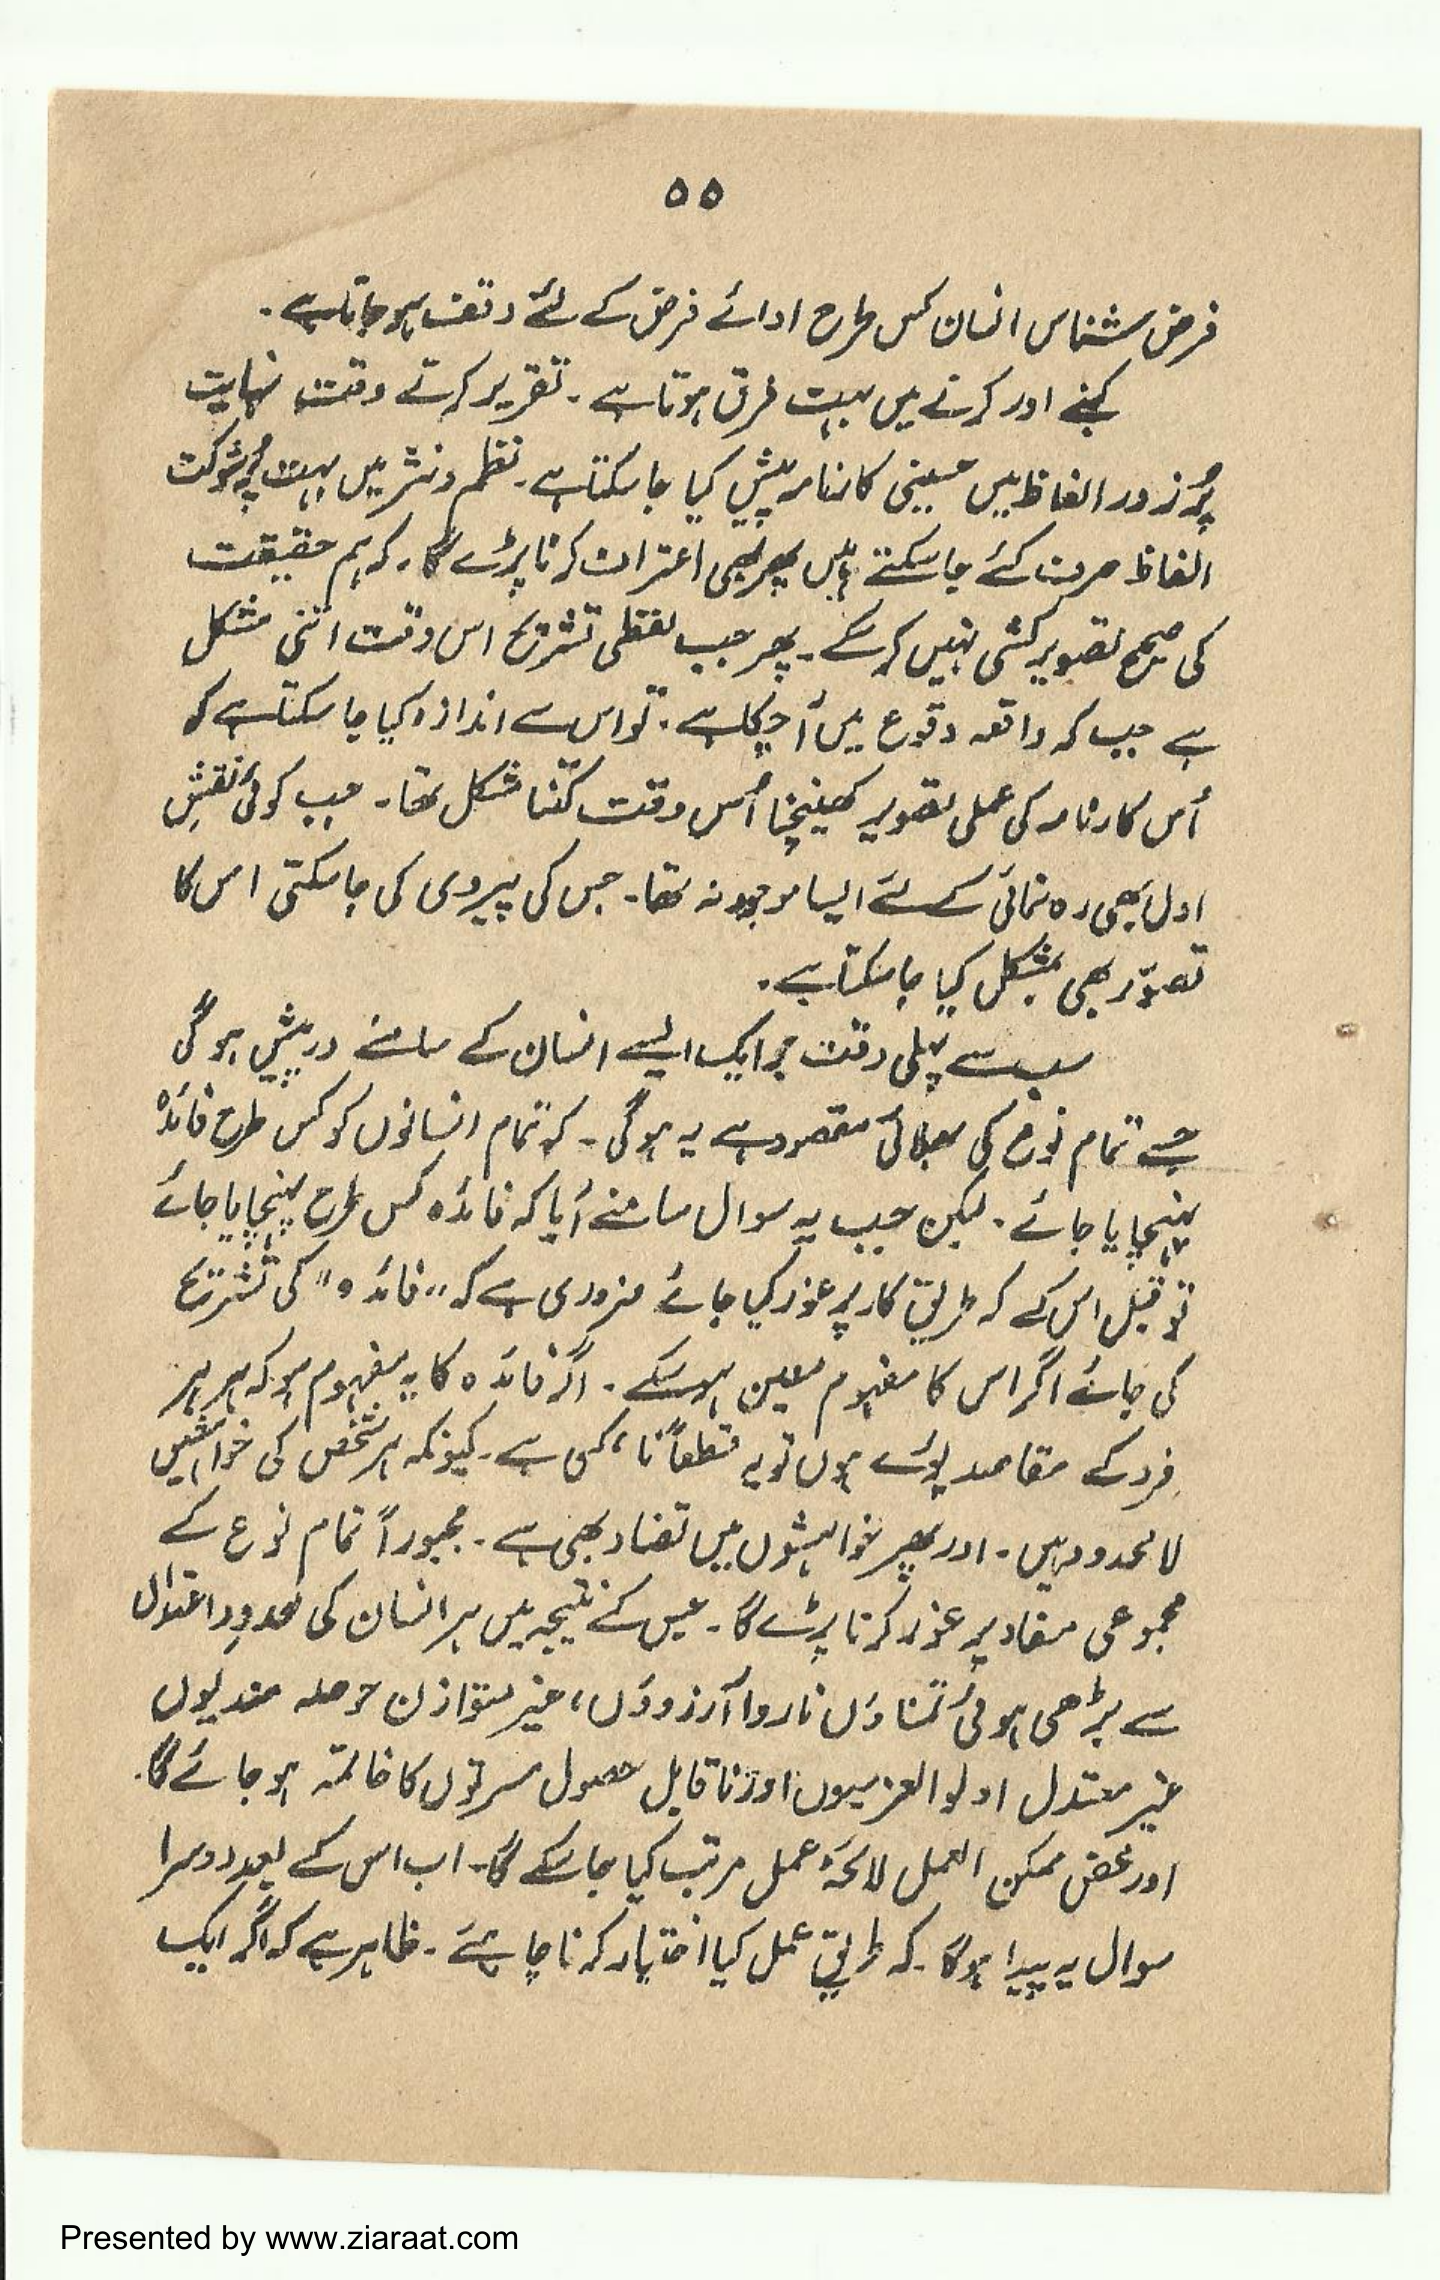 ۵۵
فرض شناس انسان کس طرح ادائے فرض کے لئے وقف ہو جاتا ہے۔
کہنے اور کرنے میں بہت فرق ہوتا ہے۔ تقریر کرتے وقت نہایت
پُر زور الفاظ میں حسینی کارنامہ پیش کیا جا سکتا ہے۔ نظم و نثر میں بہت پُر شوکت
الفاظ صرف کئے جا سکتے ہیں پھر بھی اعتراف کرنا پڑے گا۔ کہ ہم حقیقت
کی صحیح تصویر کشی نہیں کر سکے۔ پھر جب لفظی تشریح اس وقت اتنی مشکل
ہے جب کہ واقعہ وقوع میں آ چکا ہے۔ تو اس سے اندازہ کیا جا سکتا ہے کہ
اُس کارنامہ کی عملی تصویر کھینچنا اُس وقت کتنا مشکل تھا۔ جب کوئی نقشِ
اول بھی رہ نمائی کے لئے ایسا موجود نہ تھا۔ جس کی پیروی کی جا سکتی اس کا
تصوّر بھی بمشکل کیا جا سکتا ہے۔
سب سے پہلی دقت جو ایک ایسے انسان کے سامنے درپیش ہو گی
جسے تمام نوع کی بھلائی مقصود ہے یہ ہو گی۔ کہ تمام انسانوں کو کس طرح فائدہ
پہنچایا جائے۔ لیکن جب یہ سوال سامنے آیا کہ فائدہ کس طرح پہنچایا جائے
تو قبل اس کے کہ طریق کار پر غور کیا جائے ضروری ہے کہ "فائدہ" کی تشریح
کی جائے اگر اس کا مفہوم معین ہو سکے۔ اگر فائدہ کا یہ مفہوم ہو کہ ہر ہر
فرد کے مقاصد پورے ہوں تو یہ قطعاً نا ممکن ہے۔ کیونکہ ہر شخص کی خواہشیں
لا محدود ہیں۔ اور پھر خواہشوں میں تضاد بھی ہے۔ مجبوراً تمام نوع کے
مجموعی مفاد پر غور کرنا پڑے گا۔ جس کے نتیجہ میں ہر انسان کی حدودِ اعتدال
سے بڑھی ہوئی تمناؤں ناروا آرزوؤں، غیر متوازن حوصلہ مندیوں
غیر معتدل اولوالعزمیوں اور ناقابل حصول مسرتوں کا خاتمہ ہو جائے گا۔
اور محض ممکن العمل لائحۂ عمل مرتب کیا جا سکے گا۔ اب اس کے بعد دوسرا
سوال یہ پیدا ہو گا۔ کہ طریق عمل کیا اختیار کرنا چاہئے۔ ظاہر ہے کہ اگر ایک
Presented by www.ziaraat.com